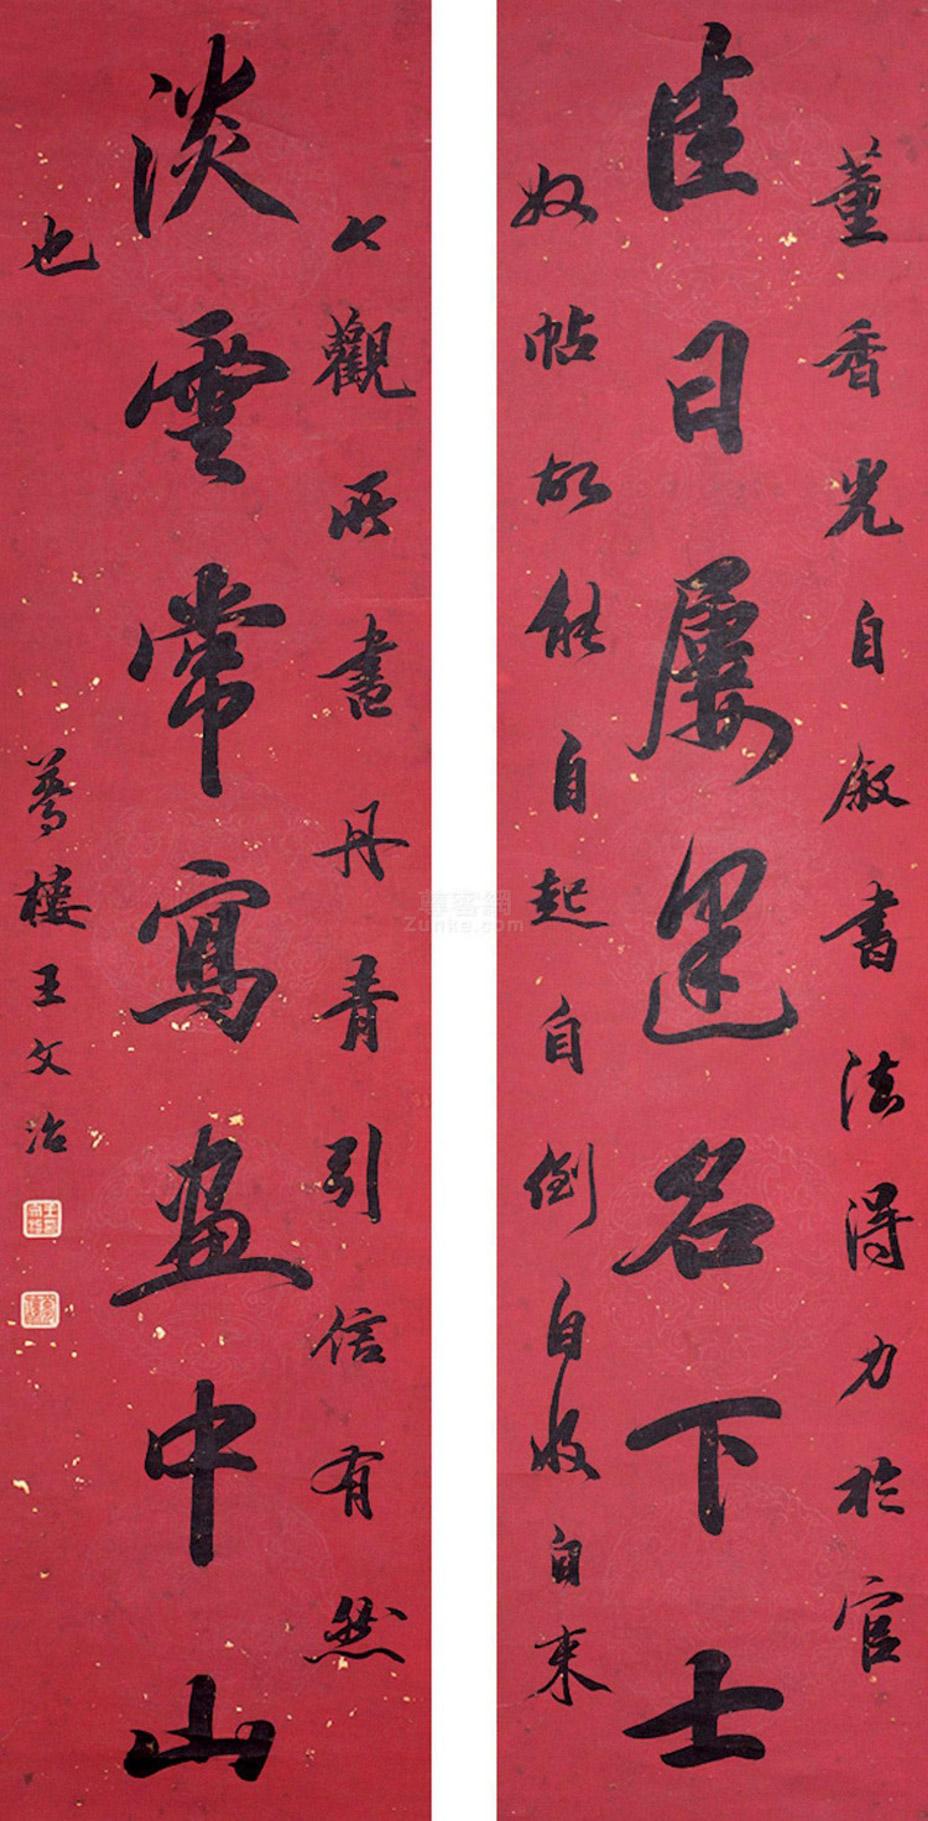 董香光自叙書法得力於官
佳日屢逢名下士
奴帖故能自起自倒自收自来
々觀所書丹青引信有然
淡雲常寫畫中山
也
夢樓王文治
尊客網
Zunke.com